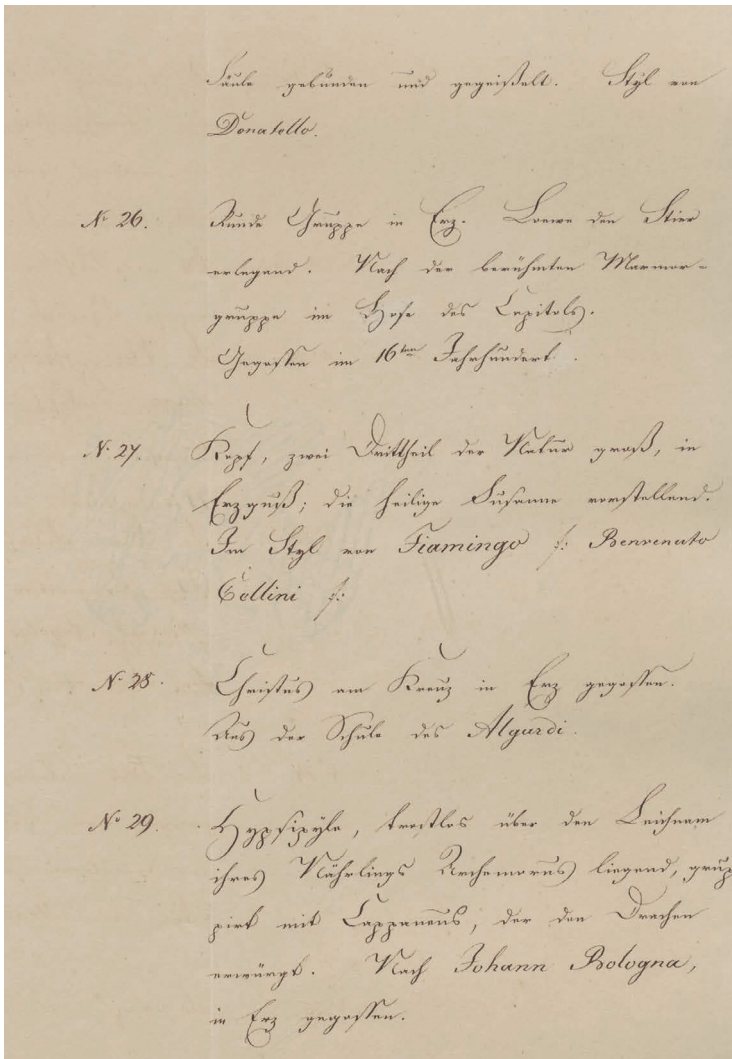 Säule gebunden und gegeißelt. Styl von
Donatello.
No 26. Runde Gruppe in Erz. Loewe den Stier
erlegend. Nach der berühmten Marmor-
gruppe im Hofe des Capitols.
Gegossen im 16ten Jahrhundert.
No 27. Kopf, zwei Drittheil der Natur groß, in
Erzguß; die heilige Susanne vorstellend.
Im Styl von Fiamingo /: Benvenuto
Cellini /:
No 28. Christus am Kreuz in Erz gegossen.
Aus der Schule des Algardi.
No 29. Hypsipyle, trostlos über den Leichnam
ihres Nährlings Archemorus liegend, grup
pirt mit Cappaneus, der den Drachen
erwürgt. Nach Johann Bologna,
in Erz gegossen.